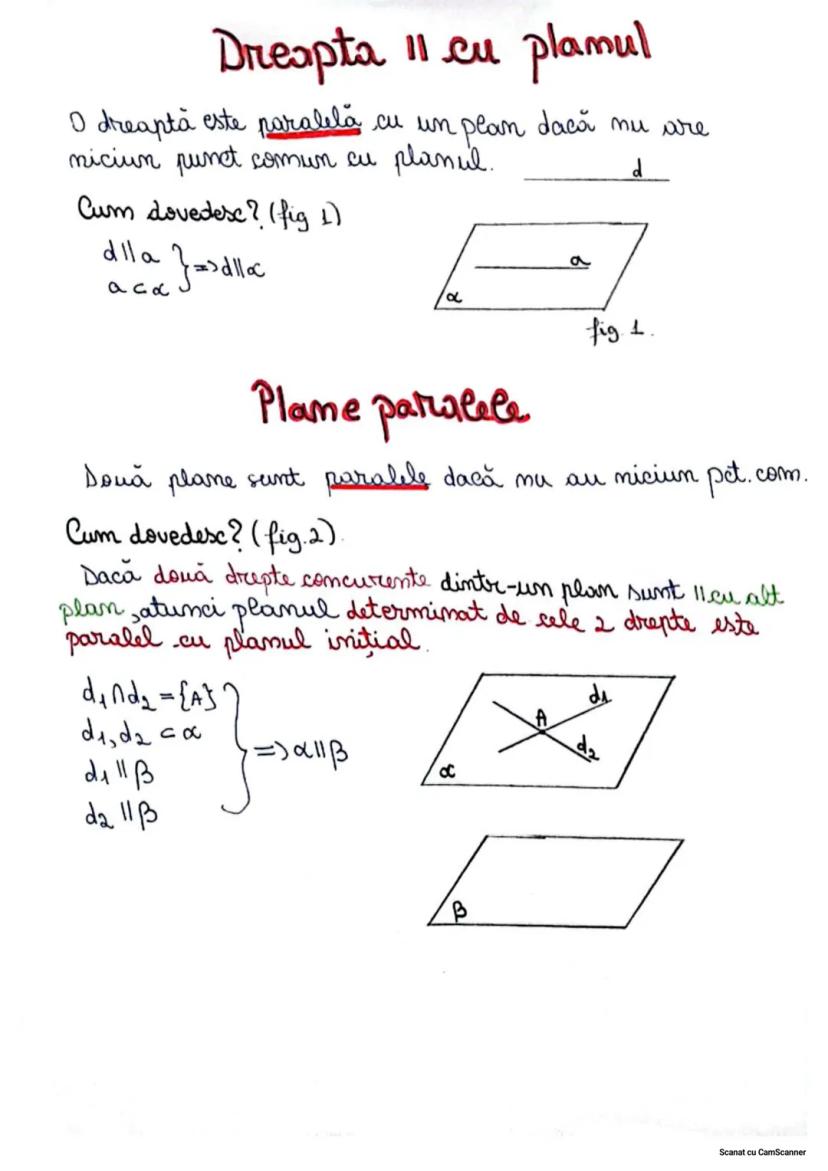 Dreapta || cu planul
O dreaptă este paralelă cu un plan dacă nu are
niciun punct comun cu planul.
d
Cum dovedesc? (fig 1)
d || a
a ⊂ α
} => d || α
a
α
fig 1.
Plane paralele
Două plane sunt paralele dacă nu au niciun pct. com.
Cum dovedesc? (fig.2).
Dacă două drepte concurente dintr-un plan sunt || cu alt
plan, atunci planul determinat de cele 2 drepte este
paralel cu planul inițial.
d₁ ∩ d₂ = {A}
d₁, d₂ ⊂ α
d₁ || β
d₂ || β
} => α || β
d₁
A
d₂
α
β
Scanat cu CamScanner